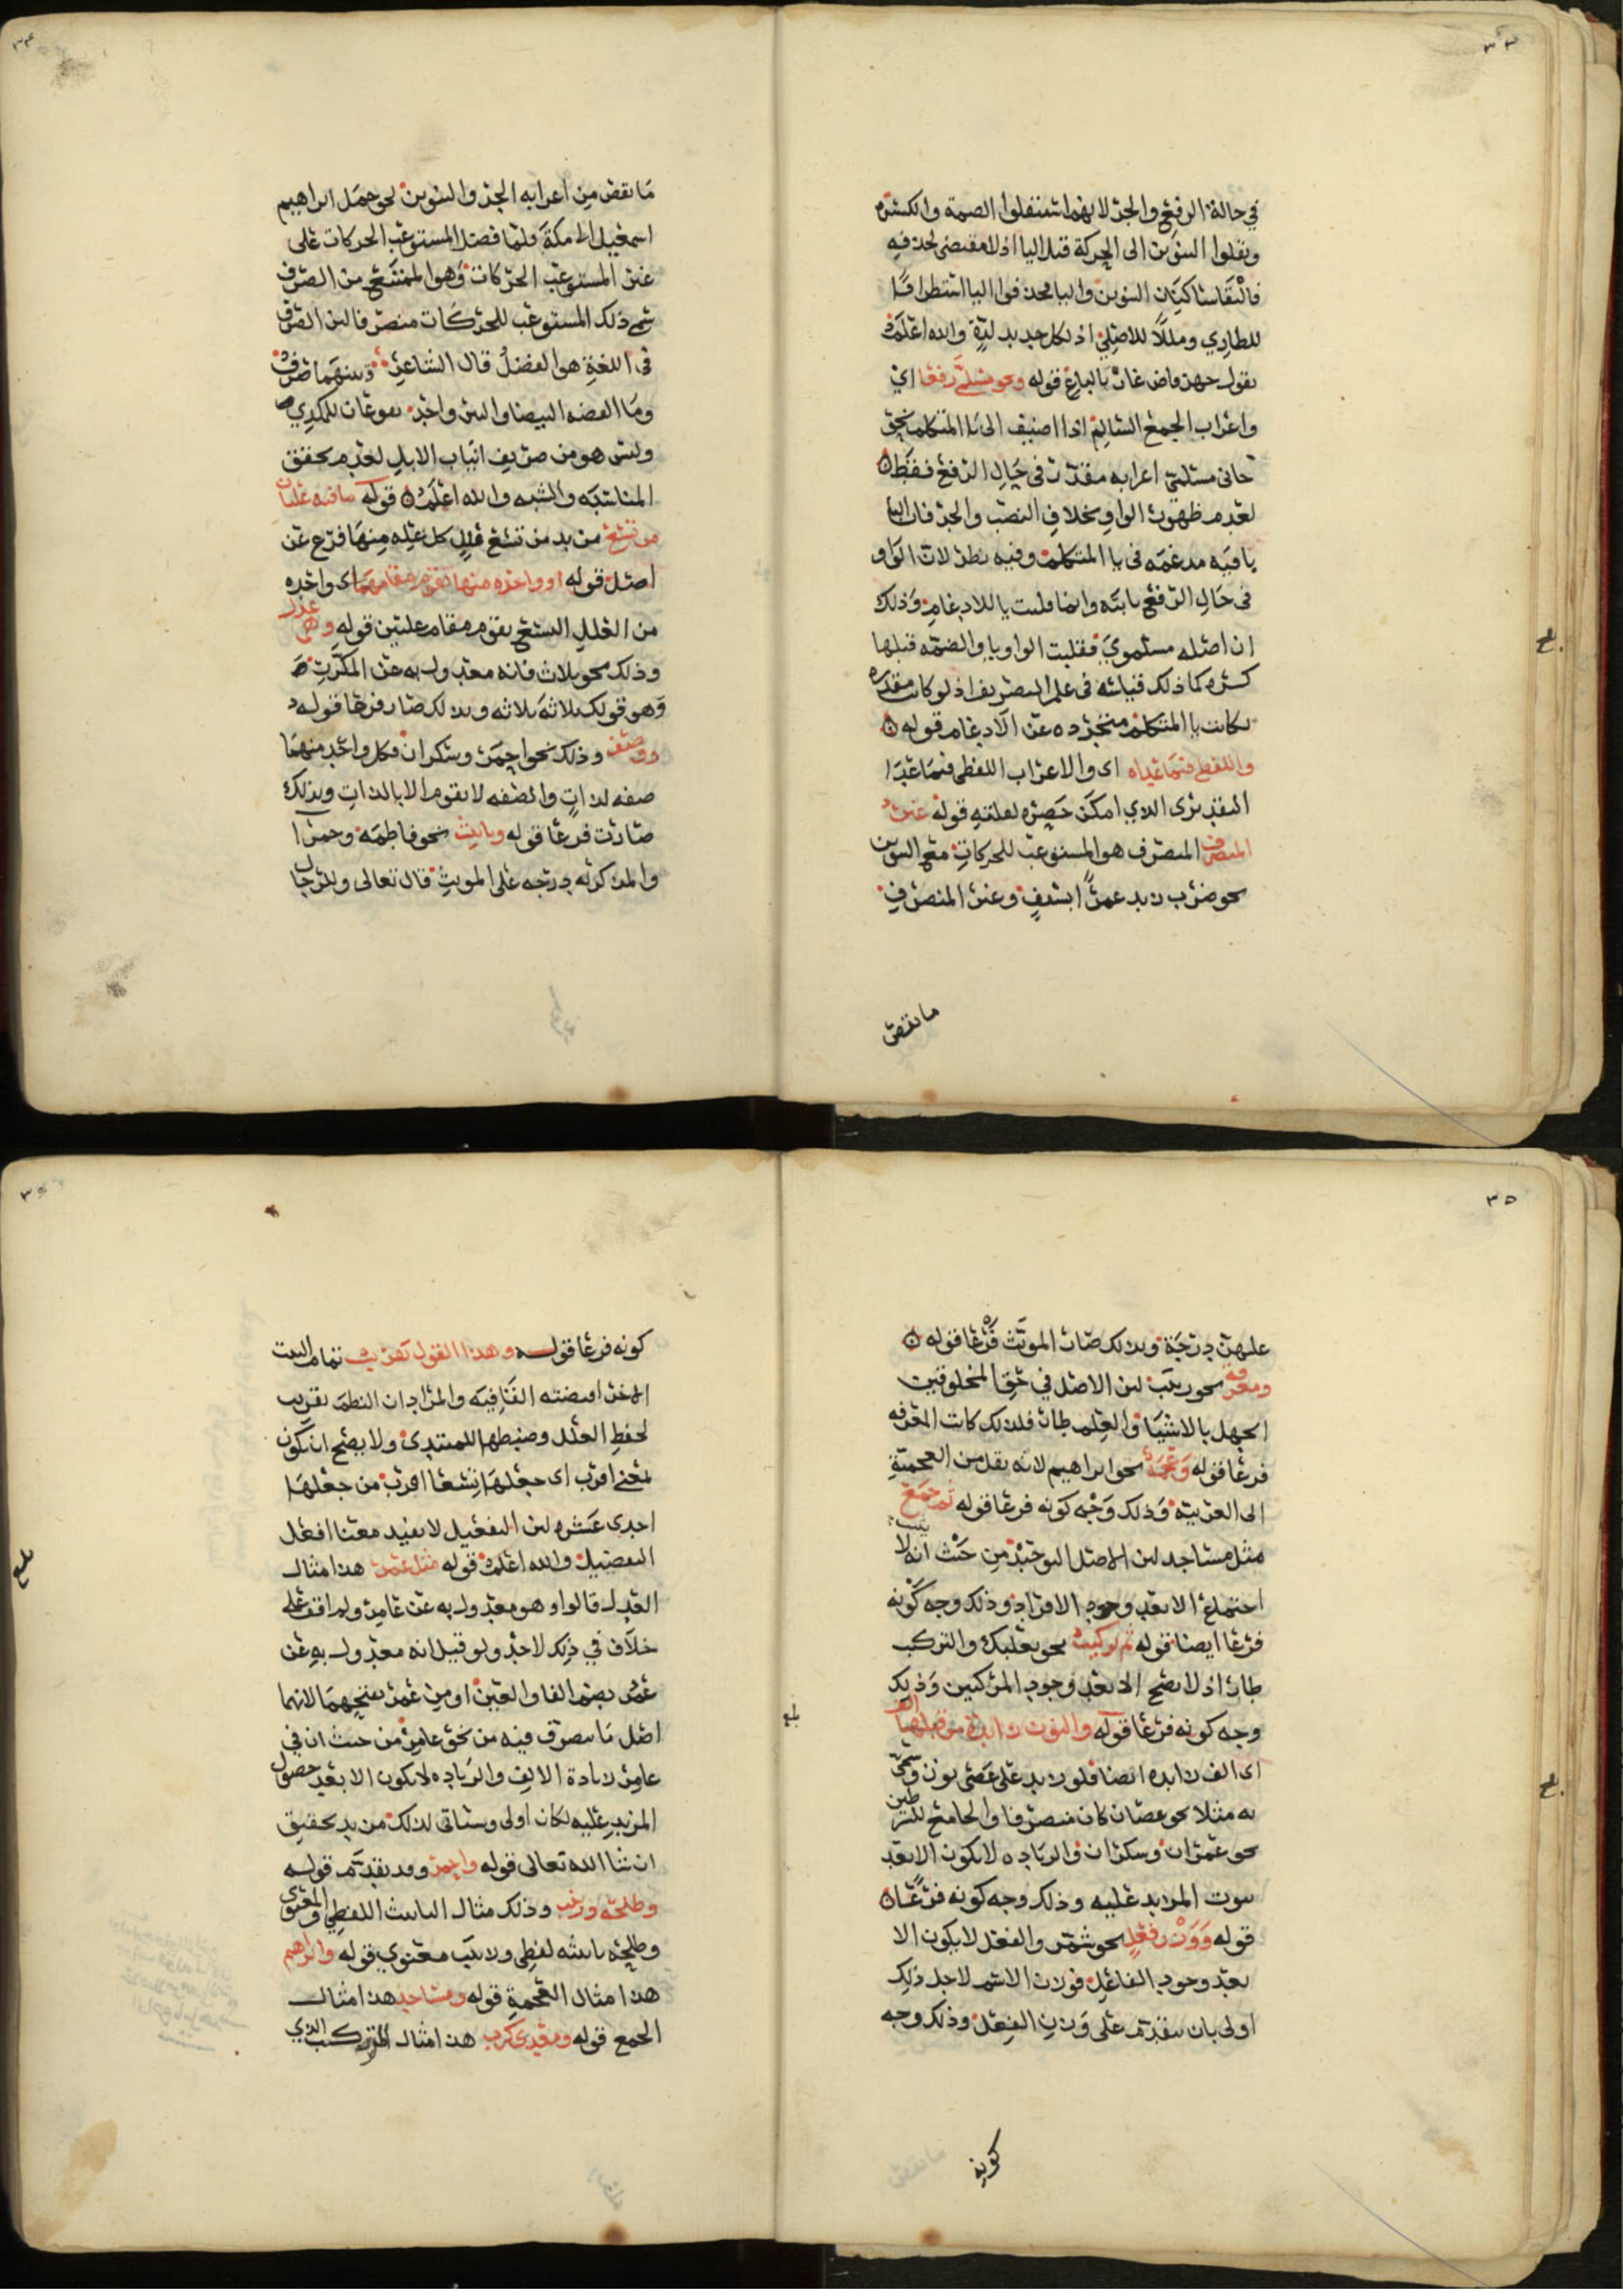 ٣٣
في حالة الرفع والجر لانهما استثقلوا الضمة والكسرة
ونقلوا التنوين الى الحركة قبل اليا اذ لا مقتضى لحذفه
فالتقا ساكنان التنوين واليا فحذفوا اليا
للطاري اذ لكل جديد لذة والله اعلم
قوله ونحو مسلمي رفعا اي
واعراب الجمع السالم اذا اضيف الى يا المتكلم نحو
جاني مسلمي اعرابه مقدر في حال الرفع فقط
لعدم ظهور الواو بخلاف النصب والجر فان اليا
باقيه مدغمه في يا المتكلم وفيه نظر لان الواو
في حال الرفع ثابته وانما قلبت يا للادغام وذلك
ان اصله مسلموي فقلبت الواو يا والضمه قبلها
كسره كما ذلك قياسه في علم التصريف اذ لو كانت مقدره
لكانت يا المتكلم متجرده عن الادغام قوله
واللفظي فيما عداه اى والاعراب اللفظي فيما عدا
التقديرى الذي امكن حصره لقلته قوله غير
المنصرف المنصرف هو المستوعب للحركات مع التنوين
نحو ضرب زيد عمرًا بسيفٍ وغير المنصرف
ما نقص
٣٤
ما نقص من اعرابه الجر والتنوين نحو حمل ابراهيم
اسمعيل الى مكة ولما فضل المستوعب الحركات على
غير المستوعب الحركات وهو الممتنع من الصرف
سمي ذلك المستوعب للحركات منصرفا لان الصرف
في اللغة هو الفضل قال الشاعر وبينهما صرف
وما الفضه البيضا والتبر واحد
وليس هو من صريف انياب الابل لعدم تحقق
المناسبه والشبه والله اعلم قوله ما فيه علتان
من تسع من بد من تسع علل كل عله منها فرع عن
اصل قوله او واحده منها تقوم مقامهما اى واحده
من العلل التسع يقوم مقام علتين قوله وهي عدل
وذلك نحو ثلاث فانه معدول به عن المكرر
وهو قولك ثلاثة ثلاثه وبذلك صار فرعا قوله
ووصف وذلك نحو احمر وسكران فكل واحد منهما
صفه لذاتٍ والصفه لا تقوم الا بالذات وبذلك
صارت فرعا قوله وتانيث نحو فاطمه وحمرا
والمذكر له درجه على المونث قال تعالى وللرجال
٣٥
عليهن درجة وبذلك صار المونث فرعا قوله
ومعرفة نحو زينب لان الاصل في حق المخلوقين
الجهل بالاشيا والعلم طار فلذلك كانت المعرفه
فرعا قوله وعجمة نحو ابراهيم لانه نقل من العجمية
الى العربية وذلك وجه كونه فرعا قوله ثم جمع
مثل مساجد لان الاصل التوحيد من حيث انه لا يثبت
اجتماع الا بعد وجود الافراد وذلك وجه كونه
فرعا ايضا قوله ثم تركيب نحو بعلبك والتركيب
طار اذ لا يصح الا بعد وجود المركبين وذلك
وجه كونه فرعا قوله والنون زايدة من قبلها الف
اى الف زايده ايضا فلو زيد على عصى نون وسمي
به مثلا نحو عصان كان منصرفا والجامع للشرطين
نحو عمران وسكران والزياده لا تكون الا بعد
ثبوت المزيد عليه وذلك وجه كونه فرعا
قوله ووزن فعل نحو شمر والفعل لا يكون الا
بعد وجود الفاعل فوزن الاسم لاجل ذلك
اولى بان يتقدم على وزن الفعل وذلك وجه
كونه
كونه فرعا قوله وهذا القول تقريب تمام البيت
الاخر اقتضته القافيه والمراد ان النظم تقريب
لحفظ العلل وضبطها للمبتدي ولا يصح ان يكون
بمعنى اقرب اى جعلها تسعا اقرب من جعلها
احدى عشره لان التفعيل لا يفيد معنا افعل
التفضيل والله اعلم قوله مثل عمر هذا مثال
العدل قالوا وهو معدول به عن عامر ولم اقف على
خلاف في ذلك لاحد ولو قيل انه معدول به عن
عمر بضم الفا والعين او من عمر بفتحهما لانهما
اصل ما تصرف فيه من نحو عامر من حيث ان في
عامر زيادة الالف والزياده لا تكون الا بعد حصول
المزيد عليه لكان اولى وسياتي لذلك مزيد تحقيق
ان شا الله تعالى قوله واحمر وقد تقدم قوله
وطلحة وزينب وذلك مثال التانيث اللفظي والمعنوي
وطلحه تانيثه لفظي وزينب معنوي قوله وابراهيم
هذا مثال العجمة قوله ومساجد هذا مثال
الجمع قوله ومعدي كرب هذا مثال التركيب الذي